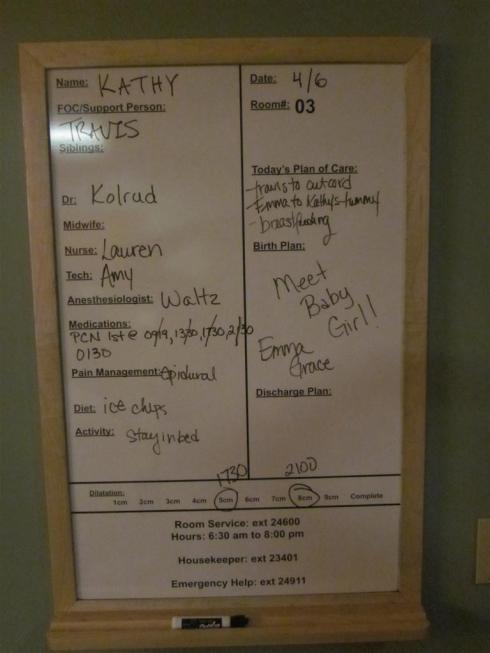 Name: KATHY
FOC/Support Person:
TRAVIS
Siblings:
Dr: Kolrud
Midwife:
Nurse: Lauren
Tech: Amy
Anesthesiologist: Waltz
Medications:
PCN 1st @ 0919, 1330, 1730, 2130
0130
Pain Management: Epidural
Diet: ice chips
Activity: Stay in bed
Date: 4/6
Room#: 03
Today's Plan of Care:
-travis to cut cord
-Emma to Kathy's tummy
-breastfeeding
Birth Plan:
Meet
Baby
Girl!!
Emma
Grace
Discharge Plan:
1730 2100
Dilatation:
1cm 2cm 3cm 4cm 5cm 6cm 7cm 8cm 9cm Complete
Room Service: ext 24600
Hours: 6:30 am to 8:00 pm
Housekeeper: ext 23401
Emergency Help: ext 24911